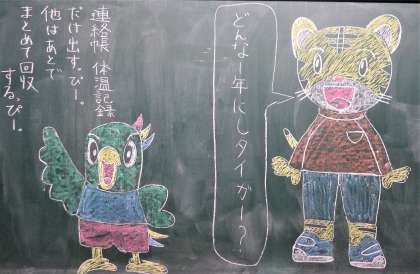 どんな一年にしタイガー？
連絡帳 体温記録
だけ出す。ぴー。
他はあとで
まとめて回収
するっぴー。